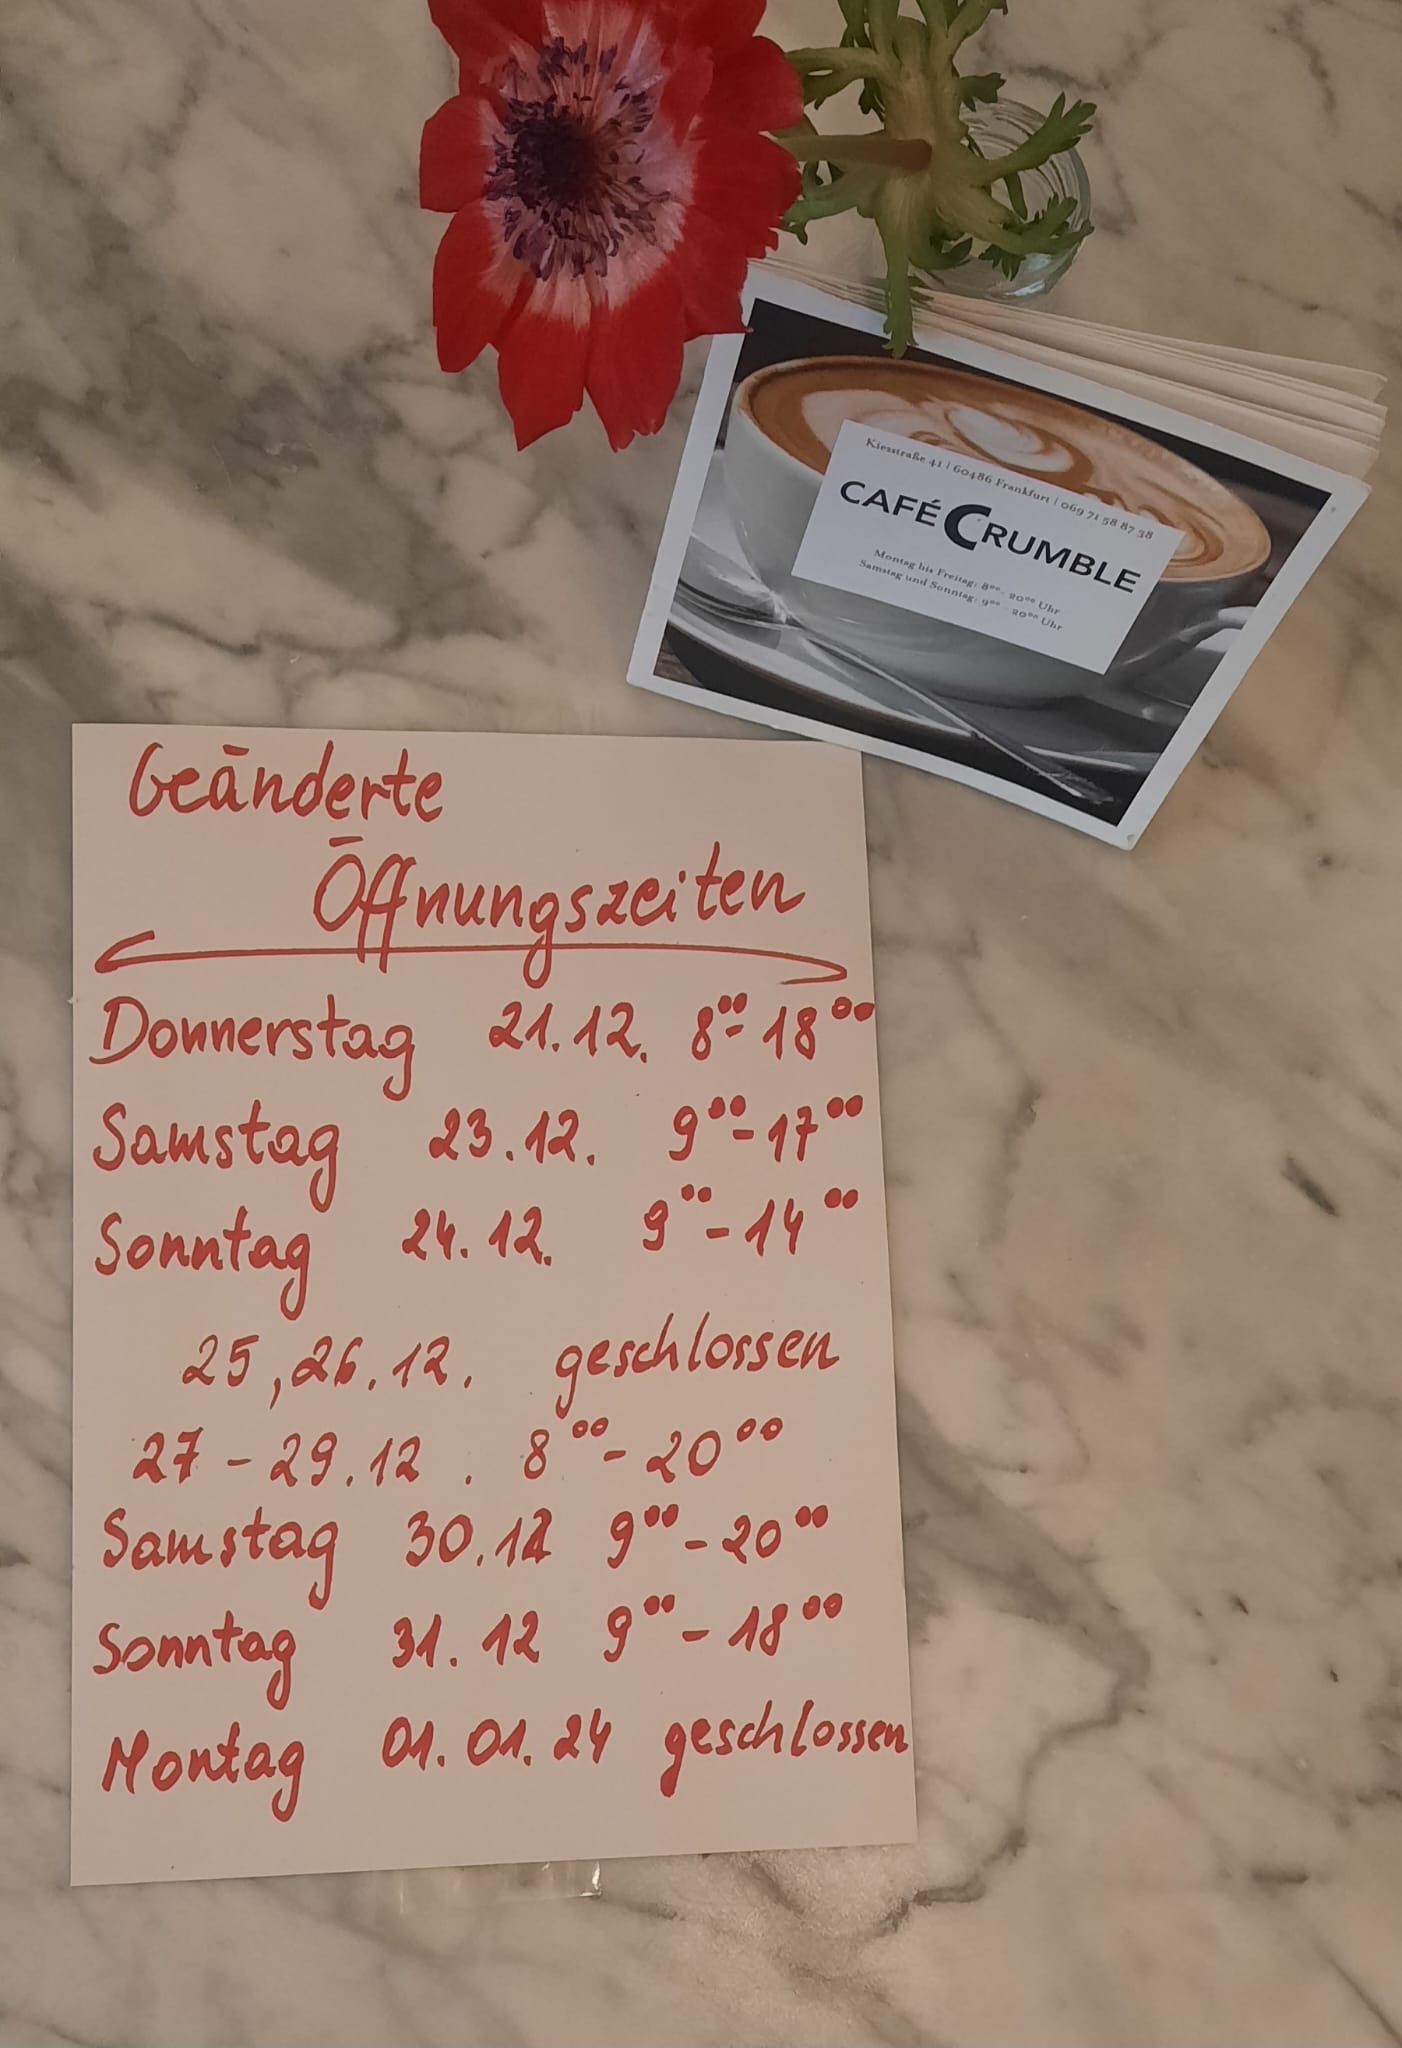 Kiesstraße 41 | 60486 Frankfurt | 069 71 58 87 38
CAFÉ CRUMBLE
Montag bis Freitag: 8⁰⁰ - 20⁰⁰ Uhr
Samstag und Sonntag: 9⁰⁰ - 20⁰⁰ Uhr
Geänderte
Öffnungszeiten
Donnerstag 21.12. 8⁰⁰-18⁰⁰
Samstag 23.12. 9⁰⁰-17⁰⁰
Sonntag 24.12. 9⁰⁰-14⁰⁰
25,26.12. geschlossen
27-29.12. 8⁰⁰-20⁰⁰
Samstag 30.12 9⁰⁰-20⁰⁰
Sonntag 31.12 9⁰⁰-18⁰⁰
Montag 01.01.24 geschlossen